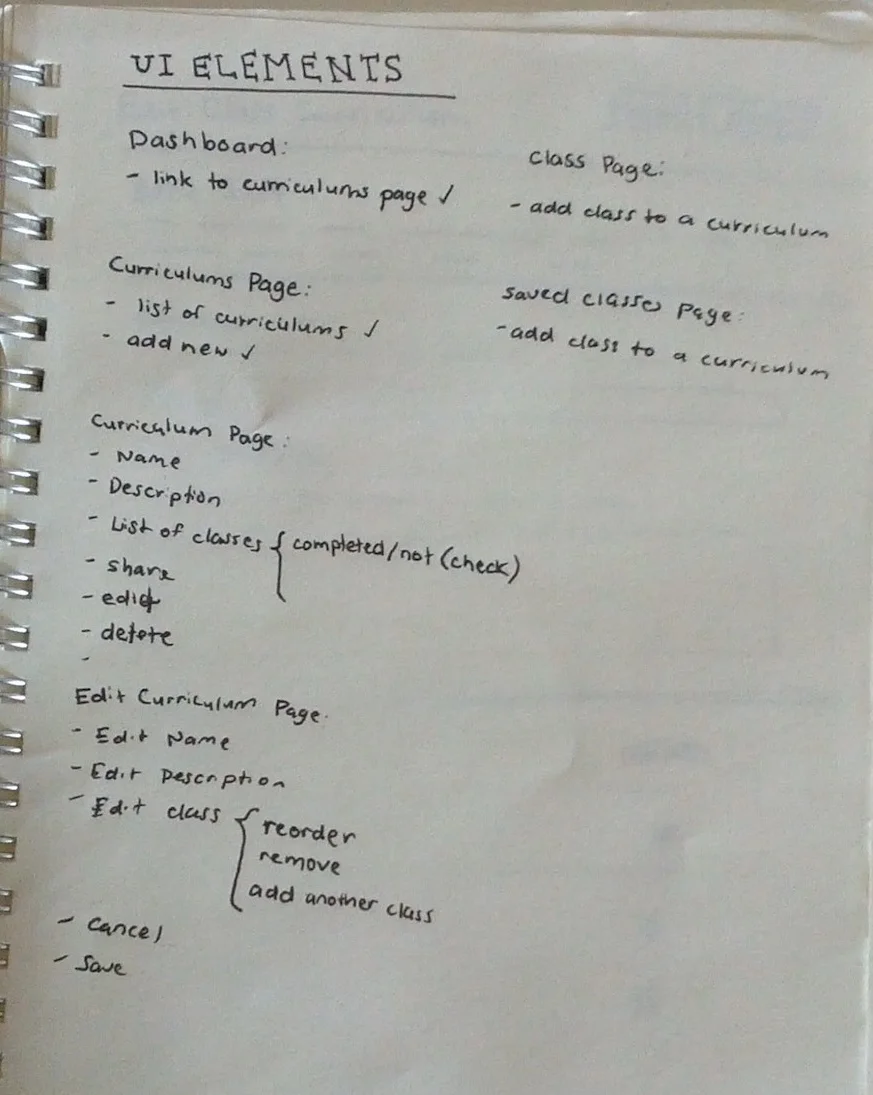 UI ELEMENTS
Dashboard:
- link to curriculums page ✓
Curriculums Page:
- list of curriculums ✓
- add new ✓
Curriculum Page:
- Name
- Description
- List of classes { completed/not (check)
- share
- edit
- delete
-
Edit Curriculum Page.
- Edit Name
- Edit Description
- Edit class { reorder
remove
add another class
- Cancel
- Save
Class Page:
- add class to a curriculum
Saved Classes Page:
- add class to a curriculum